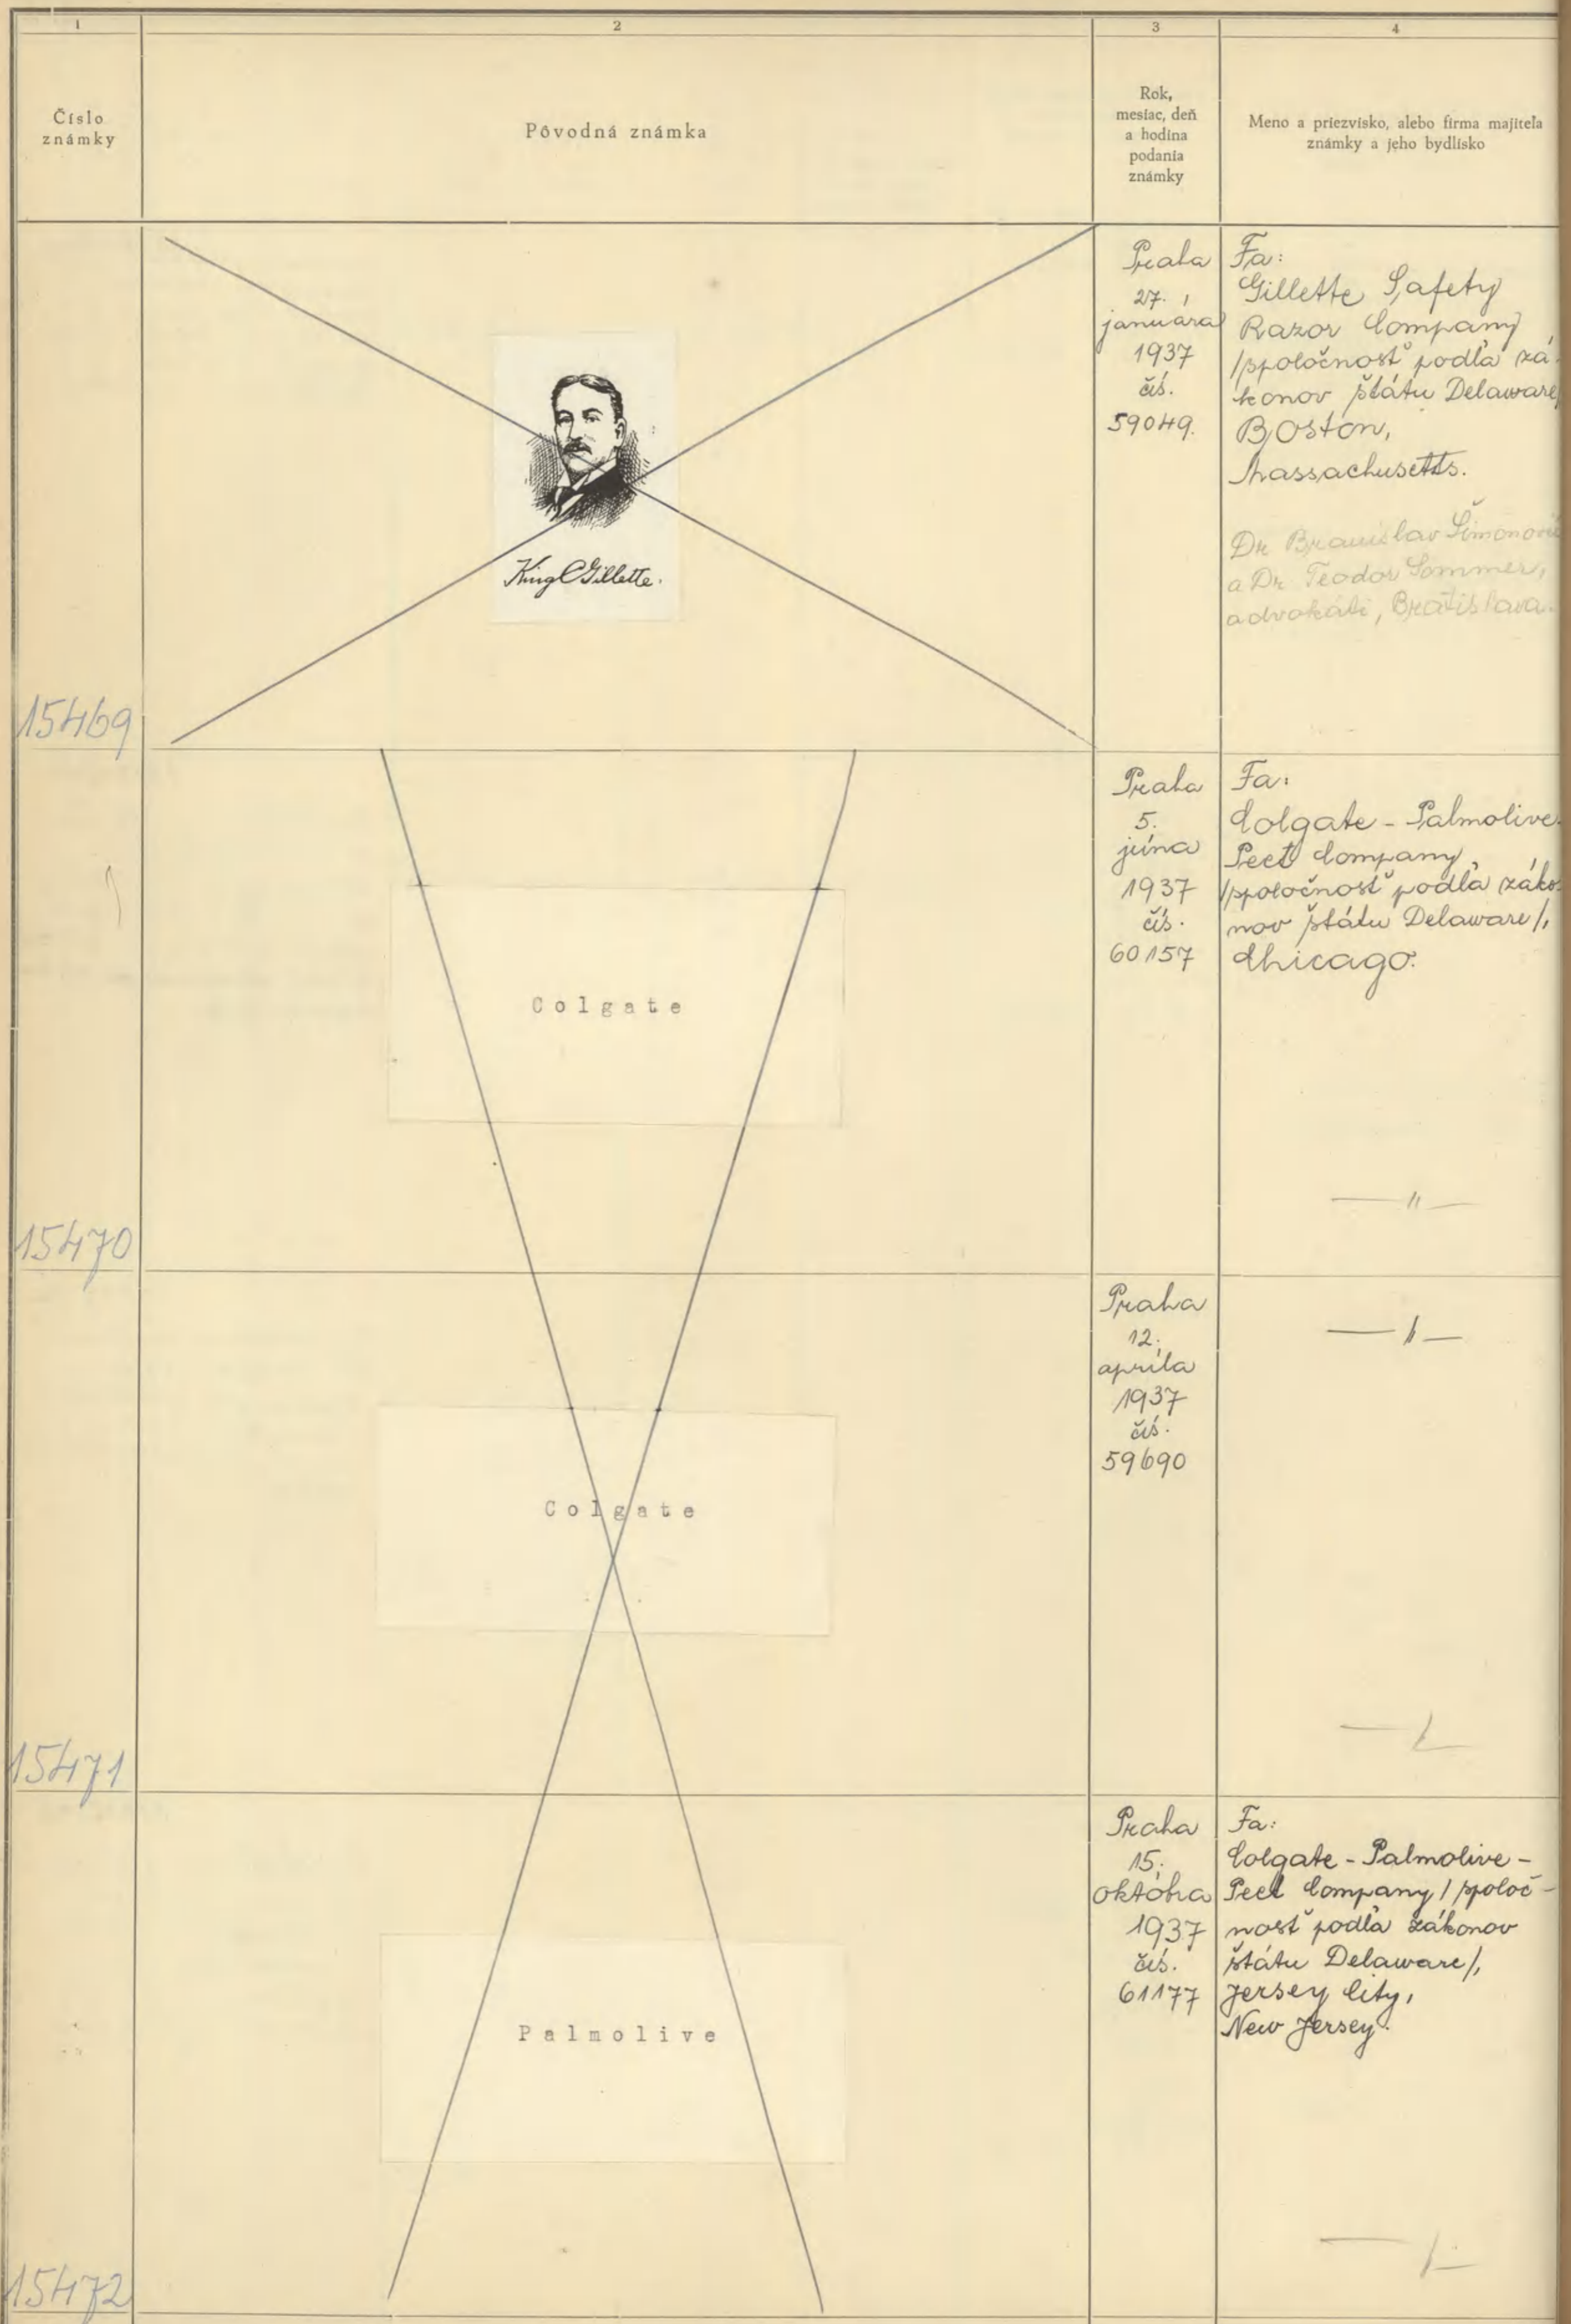 1
2
3
4
Číslo
známky
Pôvodná známka
Rok,
mesiac, deň
a hodina
podania
známky
Meno a priezvisko, alebo firma majiteľa
známky a jeho bydlisko
15469
King C Gillette.
Praha
27.
januára
1937
čís.
59049.
Fa:
Gillette Safety
Razor Company
/spoločnosť podľa zá-
konov štátu Delaware/
Boston,
Massachusetts.
Dr Branislav Šimonovič
a Dr. Teodor Sommer,
advokáti, Bratislava.
15470
Colgate
Praha
5.
júna
1937
čís.
60157
Fa:
Colgate - Palmolive-
Peet Company,
/spoločnosť podľa záko-
nov štátu Delaware/,
Chicago.
— " —
15471
Colgate
Praha
12.
apríla
1937
čís.
59690
— " —
— " —
15472
Palmolive
Praha
15.
októbra
1937
čís.
61177
Fa:
Colgate - Palmolive -
Peet Company / spoloč-
nosť podľa zákonov
štátu Delaware/,
Jersey City,
New Jersey.
— " —